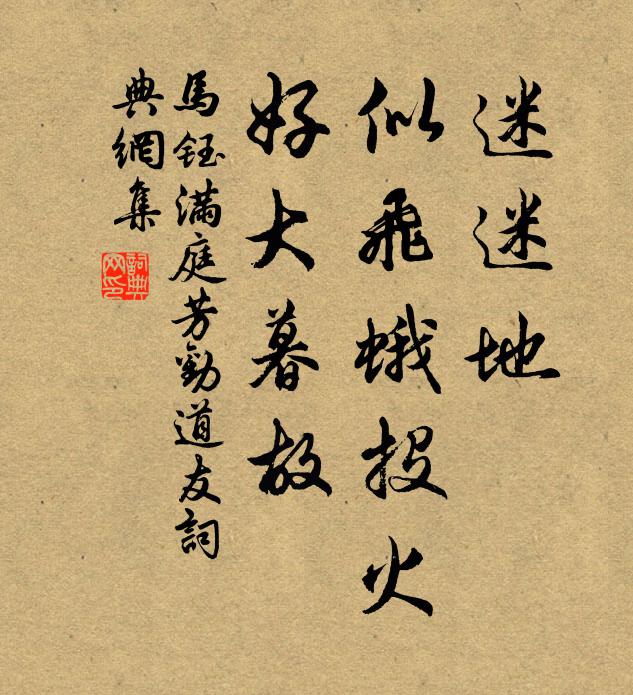 迷迷地
似飛蛾投火
好大暮故
馬鈺滿庭芳勸道友詞
典網集
詞典網印